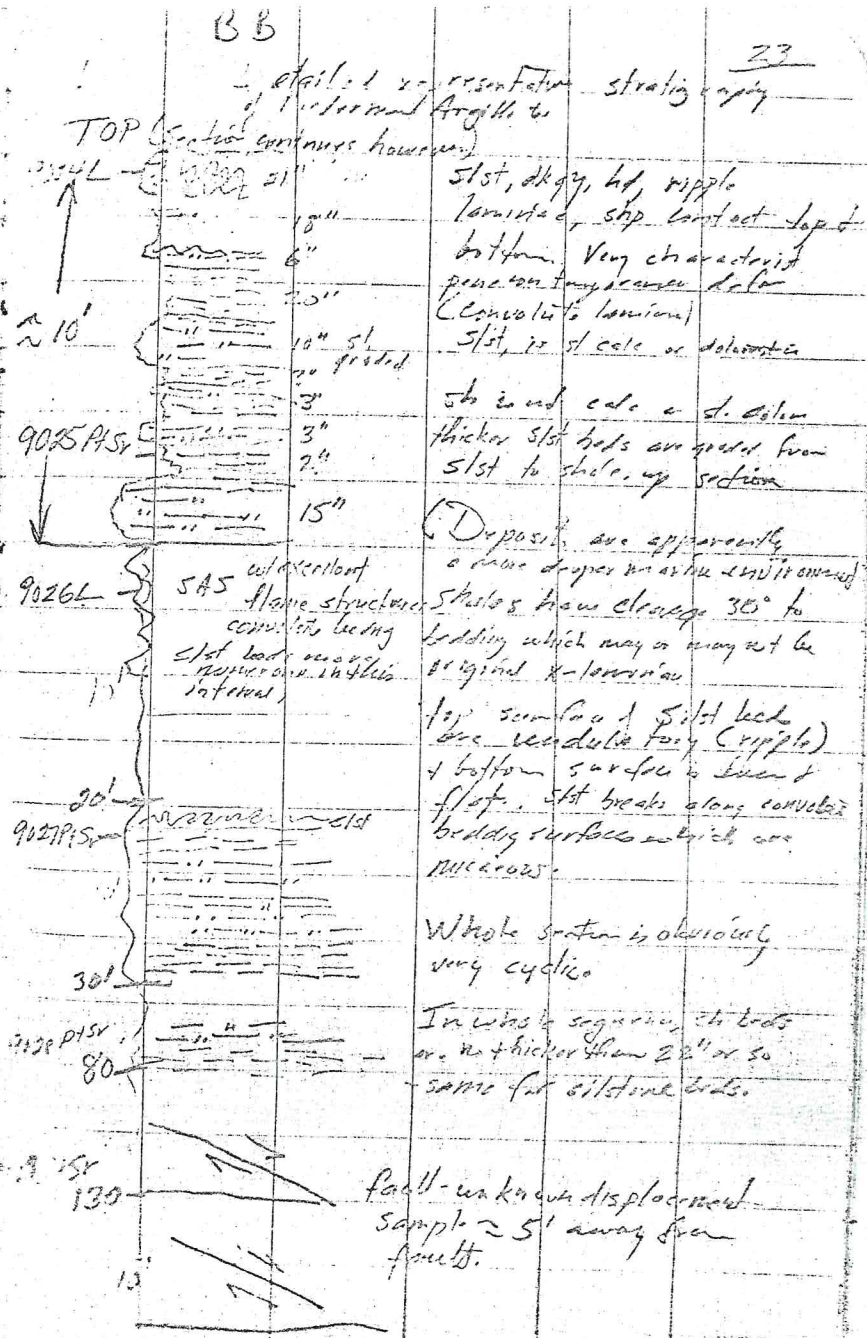 BB
23
representative stratigraphy
of Argillite
TOP (Section continues however)
21"
slst, dkgy, hd, ripple
18"
laminae, shp contact top &
6"
bottom. Very characterist
20"
penecontemporaneous defor
(convolute laminae)
≈ 10'
10" sl graded
slst, is sl calc or dolomitic
3"
sh is calc or sl. dolom
9025PtSr
3"
thicker slst beds are graded from
2"
slst to shale, up section
15"
(Deposits are apparently
a more deeper marine environment
9026L
SAS w/excellent
flame structures
convolute bedding
slst beds more
numerous in this
interval)
Shales have cleavage 30° to
bedding which may or may not be
original x-laminae
top surface of slst beds
are undulatory (ripple)
& bottom surface is &
flat. slst breaks along convolute
bedding surfaces which are
micaceous.
20'
9027PtSr
slst
Whole section is obviously
very cyclic.
30'
In whole sequence, sh beds
are no thicker than 22" or so
same for siltstone beds.
PtSr
80
130
fault-unknown displacement
sample ≈ 5' away from
fault.